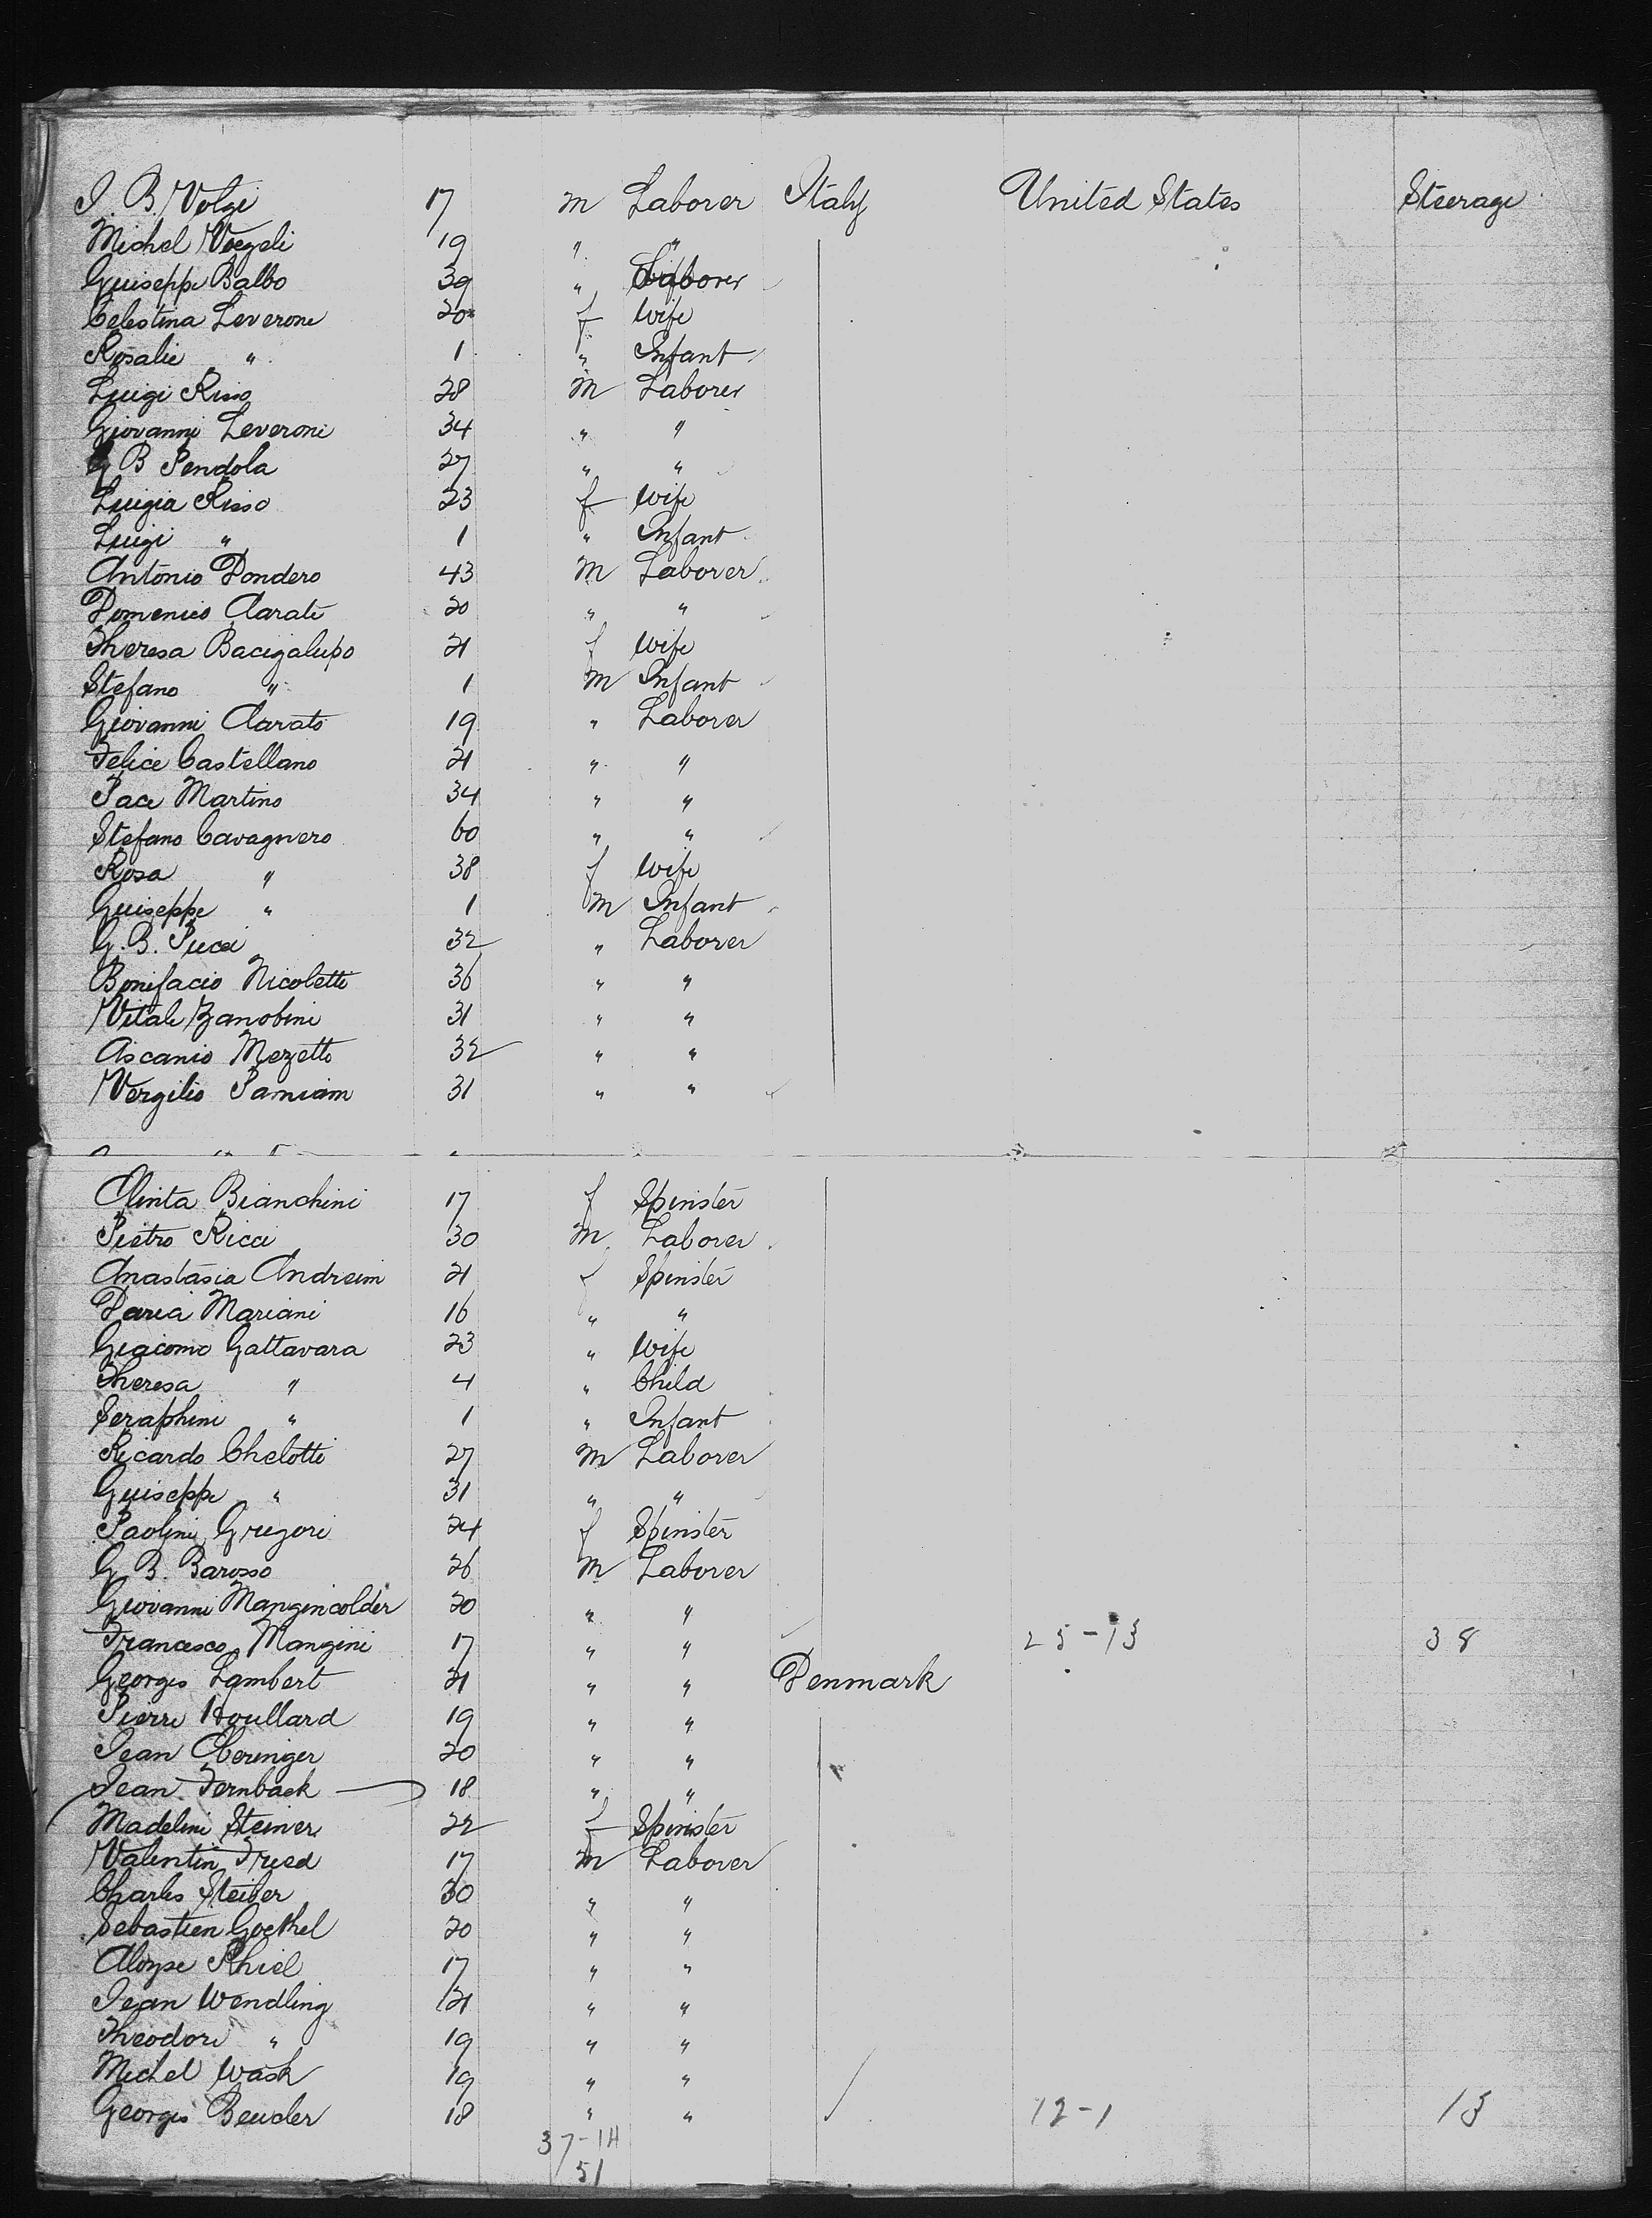 I. B. Volgi 17 m Laborer Italy United States Steerage
Michel Voegeli 19 " "
Guiseppe Balbo 39 " Laborer
Celestina Leverone 20 f Wife
Rosalie " 1 " Infant
Luigi Risso 28 m Laborer
Giovanni Leveroni 34 " "
G B Pendola 27 " "
Luigia Risso 23 f Wife
Luigi " 1 " Infant
Antonio Dondero 43 m Laborer
Domenico Clarati 20 " "
Theresa Bacigalupo 21 f Wife
Stefano " 1 m Infant
Giovanni Clarato 19 " Laborer
Felice Castellano 21 " "
Pace Martino 34 " "
Stefano Cavagnero 60 " "
Rosa " 38 f Wife
Guiseppe " 1 m Infant
G. B. Pucci 32 " Laborer
Bonifacio Nicoletti 36 " "
Vitale Zanobini 31 " "
Ascanio Mezetti 32 " "
Vergilio 31 " "
Clinta Bianchini 17 f Spinster
Pietro Ricci 30 m Laborer
Anastasia Andreini 21 f Spinster
Daria Mariani 16 " "
Giacomo Gattavara 23 " Wife
Theresa " 4 " Child
Seraphini " 1 " Infant
Ricardo Chelotti 27 m Laborer
Guiseppe " 31 " "
Paolini Gregori 24 f Spinster
G. B. Barosso 26 m Laborer
Giovanni Mangincolder 20 " "
Francesco Mangini 17 " " 25-13 38
Georges Lambert 21 " " Denmark
Pierre Houllard 19 " "
Jean Oberinger 20 " "
Jean Fernback 18 " "
Madelini Steiner 22 f Spinster
Valentin Fried 17 m Laborer
Charles Steiber 30 " "
Sebastien Goethel 20 " "
Aloyse Rhiel 17 " "
Jean Wendling 21 " "
Theodore " 19 " "
Michel Wask 19 " "
Georges Beuder 18 " " 12-1 13
37-14
51